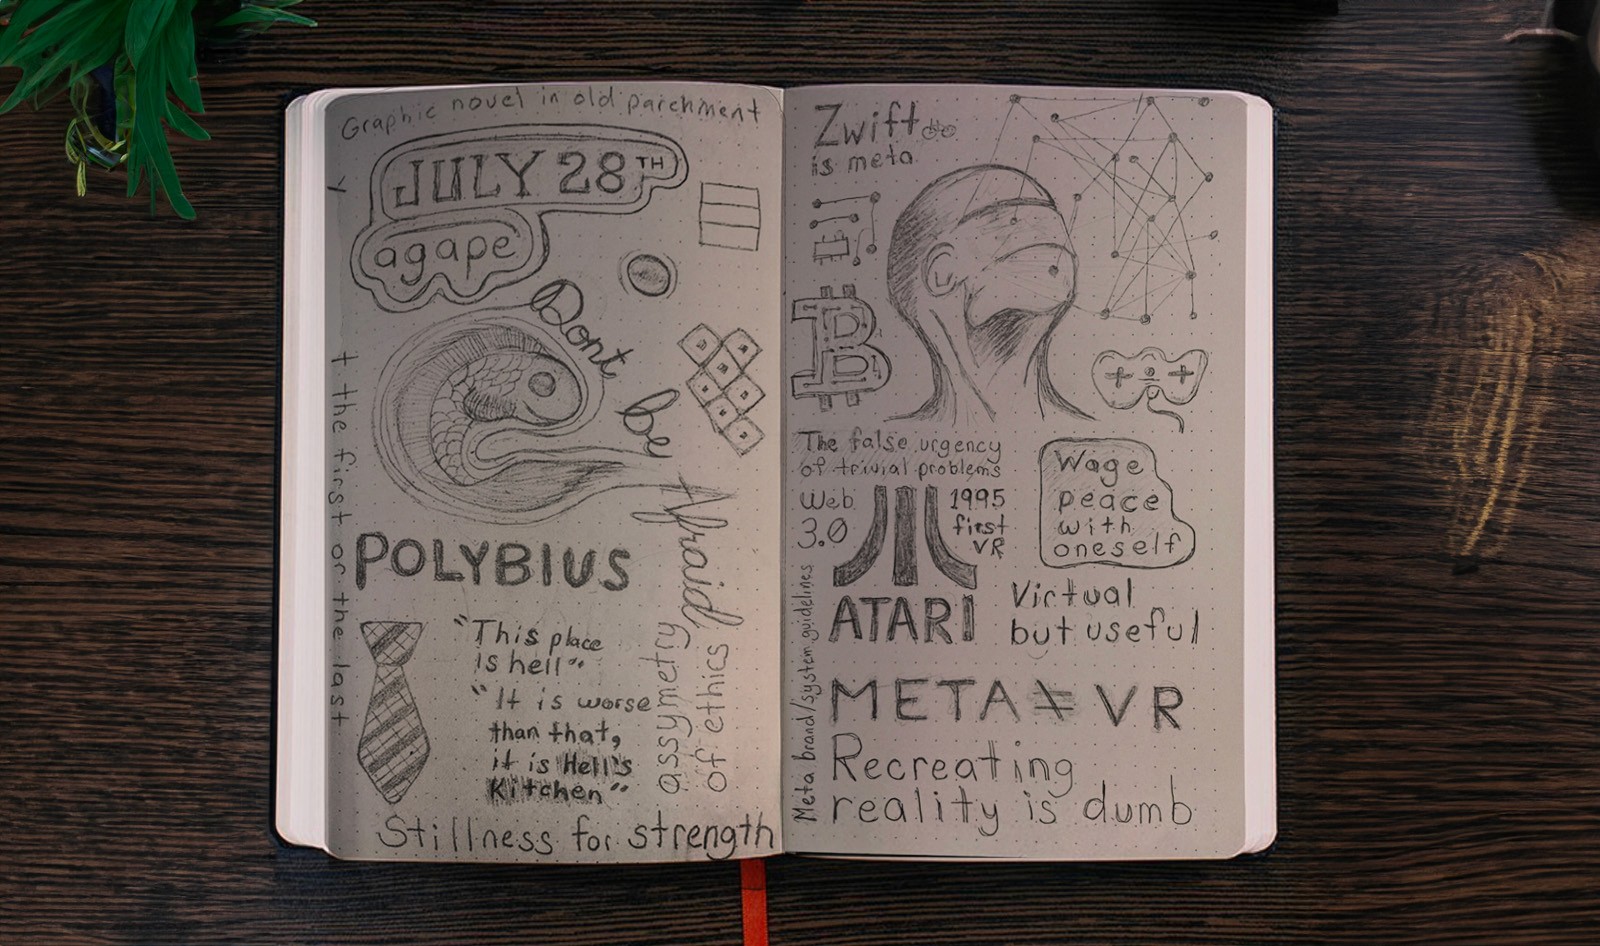 Graphic novel in old parchment
JULY 28TH
agape
Dont
be
Afraid
y
t the first or the last
POLYBIUS
"This place
is hell"
"It is worse
than that,
it is Hell's
Kitchen"
assymetry
of ethics
Stillness for strength
Zwift
is meta
B
The false urgency
of trivial problems
Web
3.0
1995
first
VR
ATARI
Wage
peace
with
oneself
Virtual
but useful
Meta brand/system guidelines
META ≠ VR
Recreating
reality is dumb